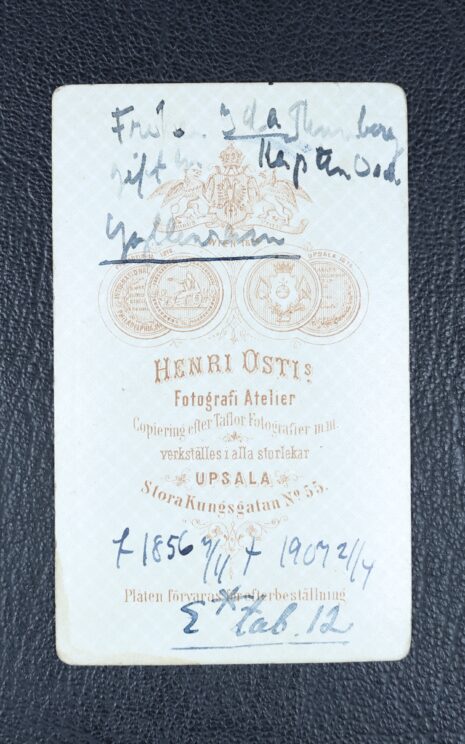 Ida Thunberg
gift
Kapten
Gyllenram
WIEN 18
UPSALA
HENRI OSTIs
Fotografi Atelier
Copiering efter Taflor Fotografier m.m.
verkställes i alla storlekar
UPSALA
Stora Kungsgatan No. 55.
f 1856 4/11 † 1907 21/4
Platen förvaras för efterbeställning
E* tab. 12